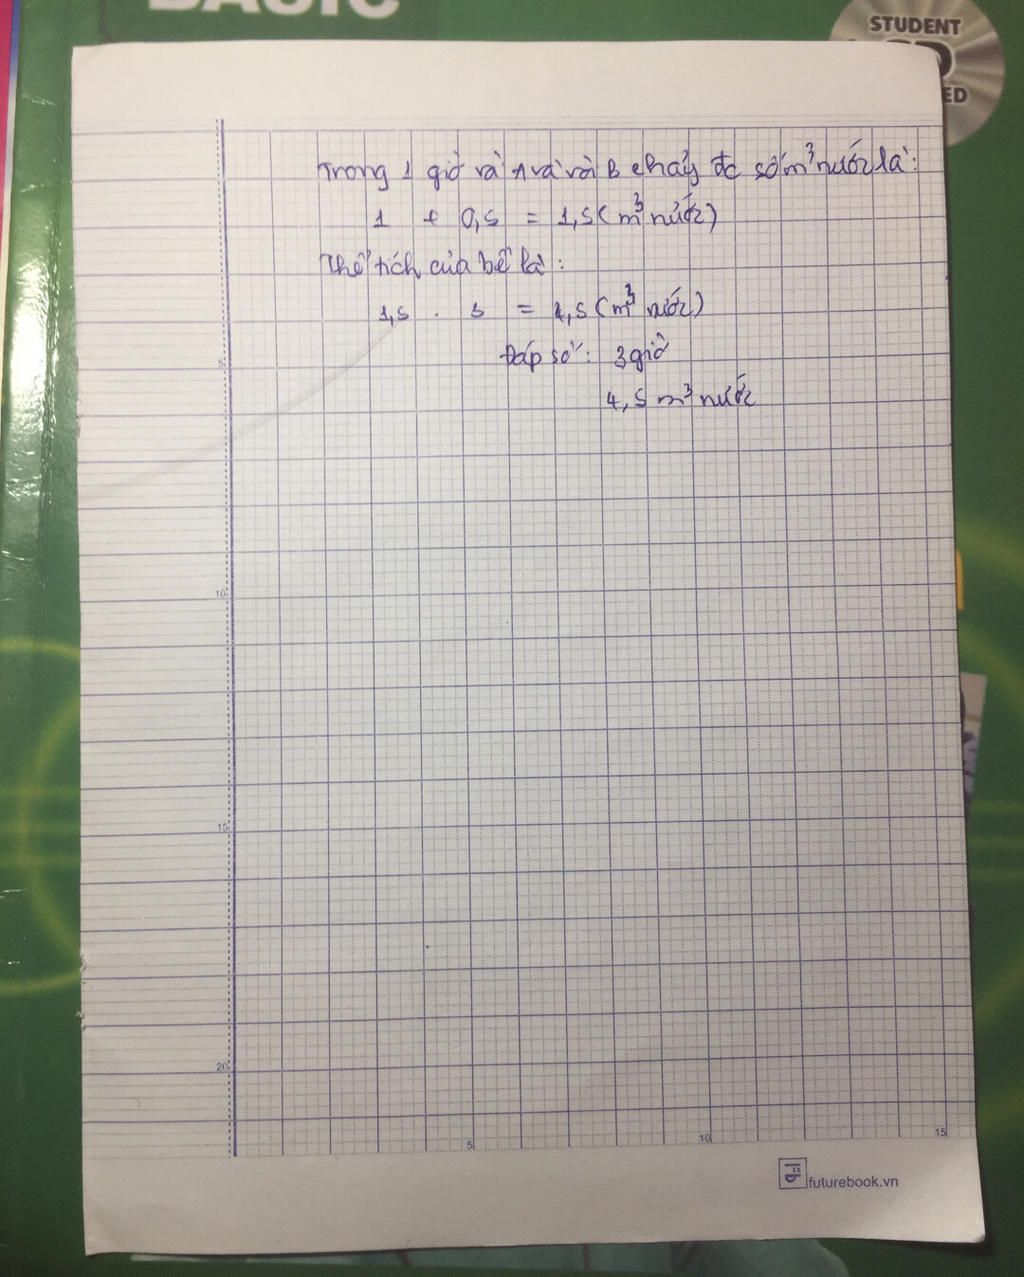 BASIC
STUDENT
CD
ED
Trong 1 giờ và A và vòi B chảy đc số m³ nước là:
1 + 0,5 = 1,5 (m³ nước)
Thể tích của bể là:
1,5 . 3 = 4,5 (m³ nước)
Đáp số: 3 giờ
4,5 m³ nước
5
10
15
20
5
10
15
futurebook.vn